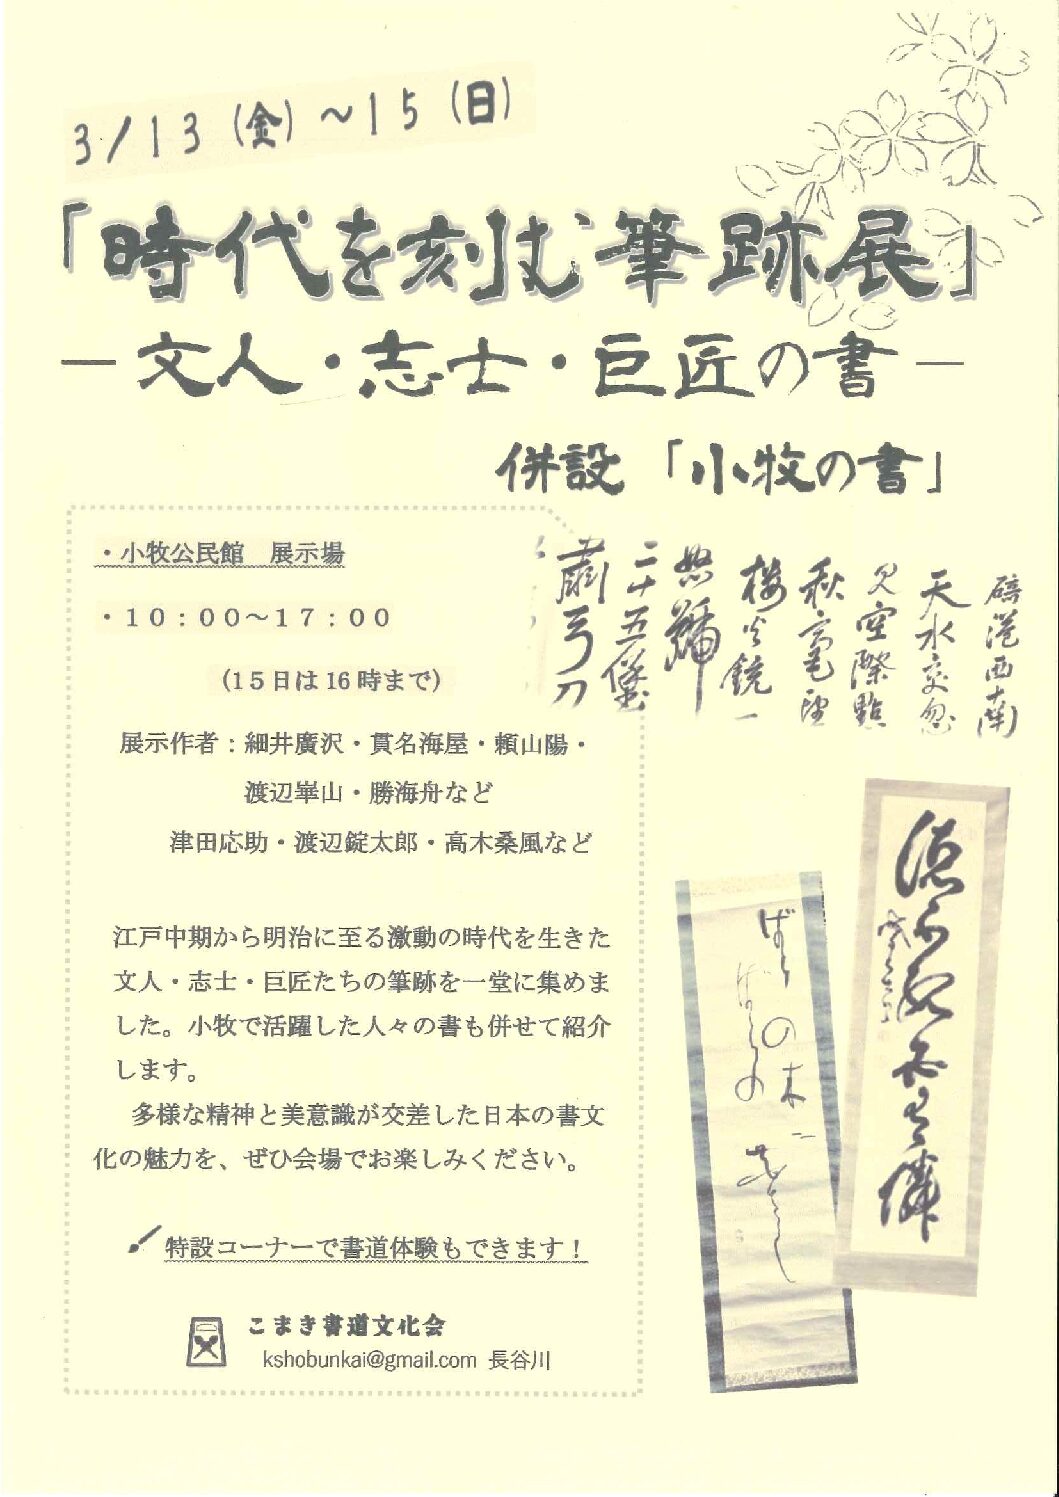 3/13(金)～15(日)
「時代を刻む筆跡展」
－文人・志士・巨匠の書－
併設「小牧の書」
・小牧公民館　展示場
・10：00～17：00
(15日は16時まで)
展示作者：細井廣沢・貫名海屋・頼山陽・
渡辺崋山・勝海舟など
津田応助・渡辺錠太郎・高木桑風など
江戸中期から明治に至る激動の時代を生きた
文人・志士・巨匠たちの筆跡を一堂に集めま
した。小牧で活躍した人々の書も併せて紹介
します。
多様な精神と美意識が交差した日本の書文
化の魅力を、ぜひ会場でお楽しみください。
特設コーナーで書道体験もできます！
こまき書道文化会
kshobunkai@gmail.com 長谷川
天水交忽
二十五